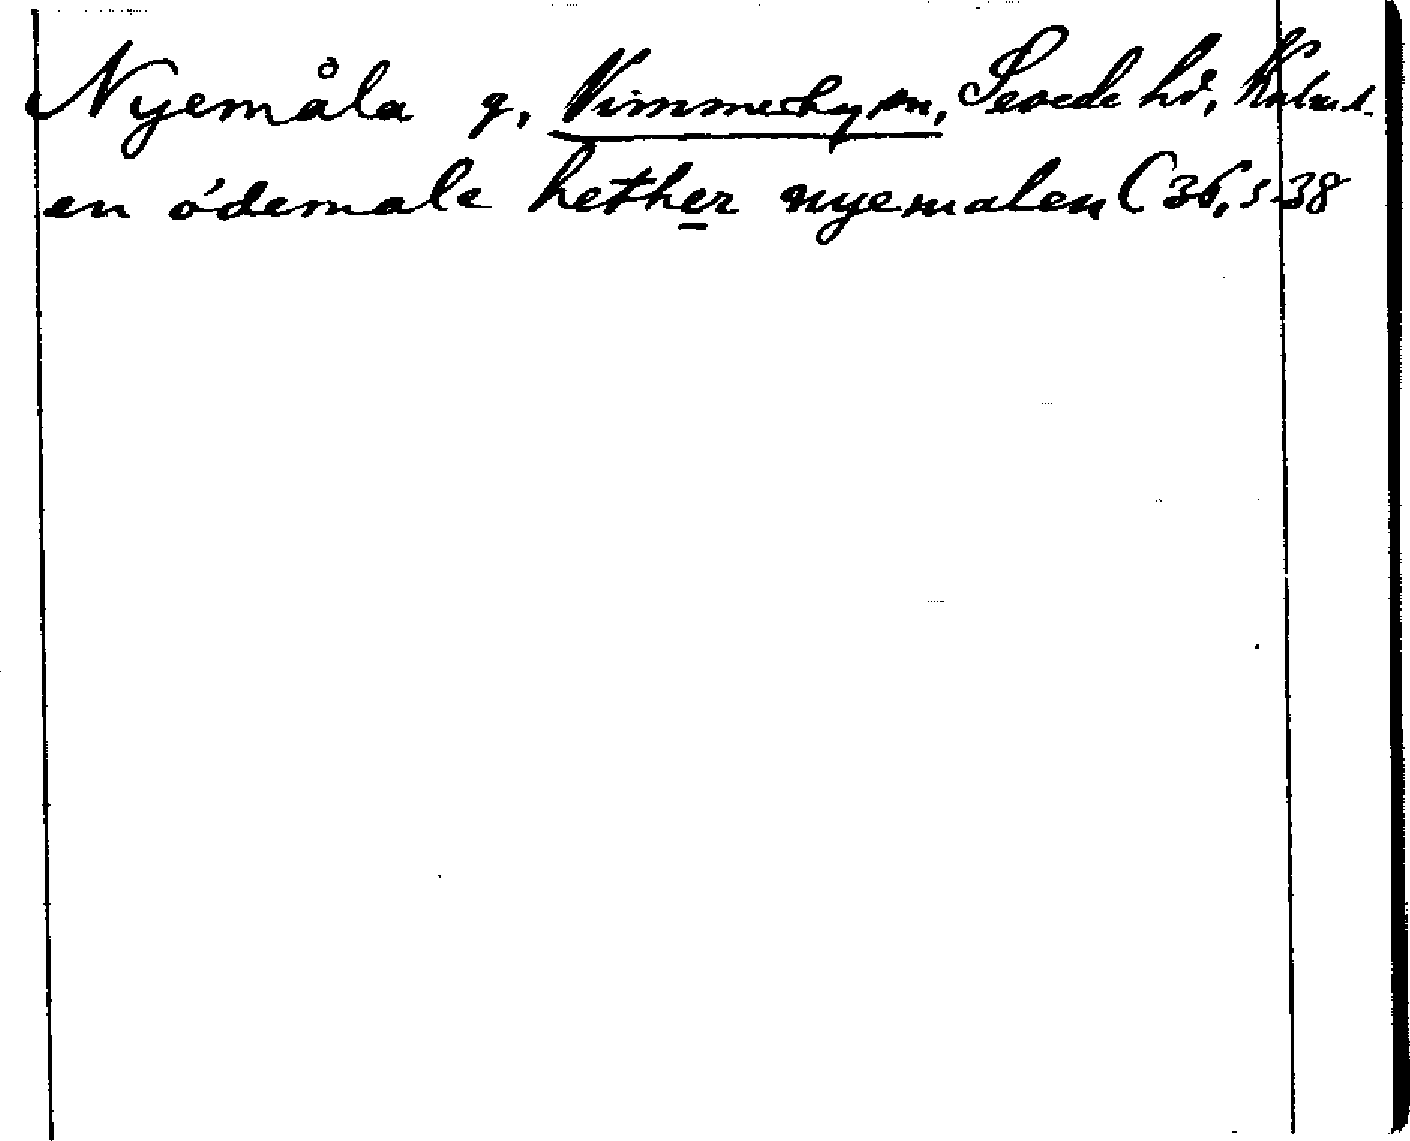 Nyemåla g, Vimmerby sn, Sevede hd, Kalm l.
en ódemale hether nyemalen (36, s 38